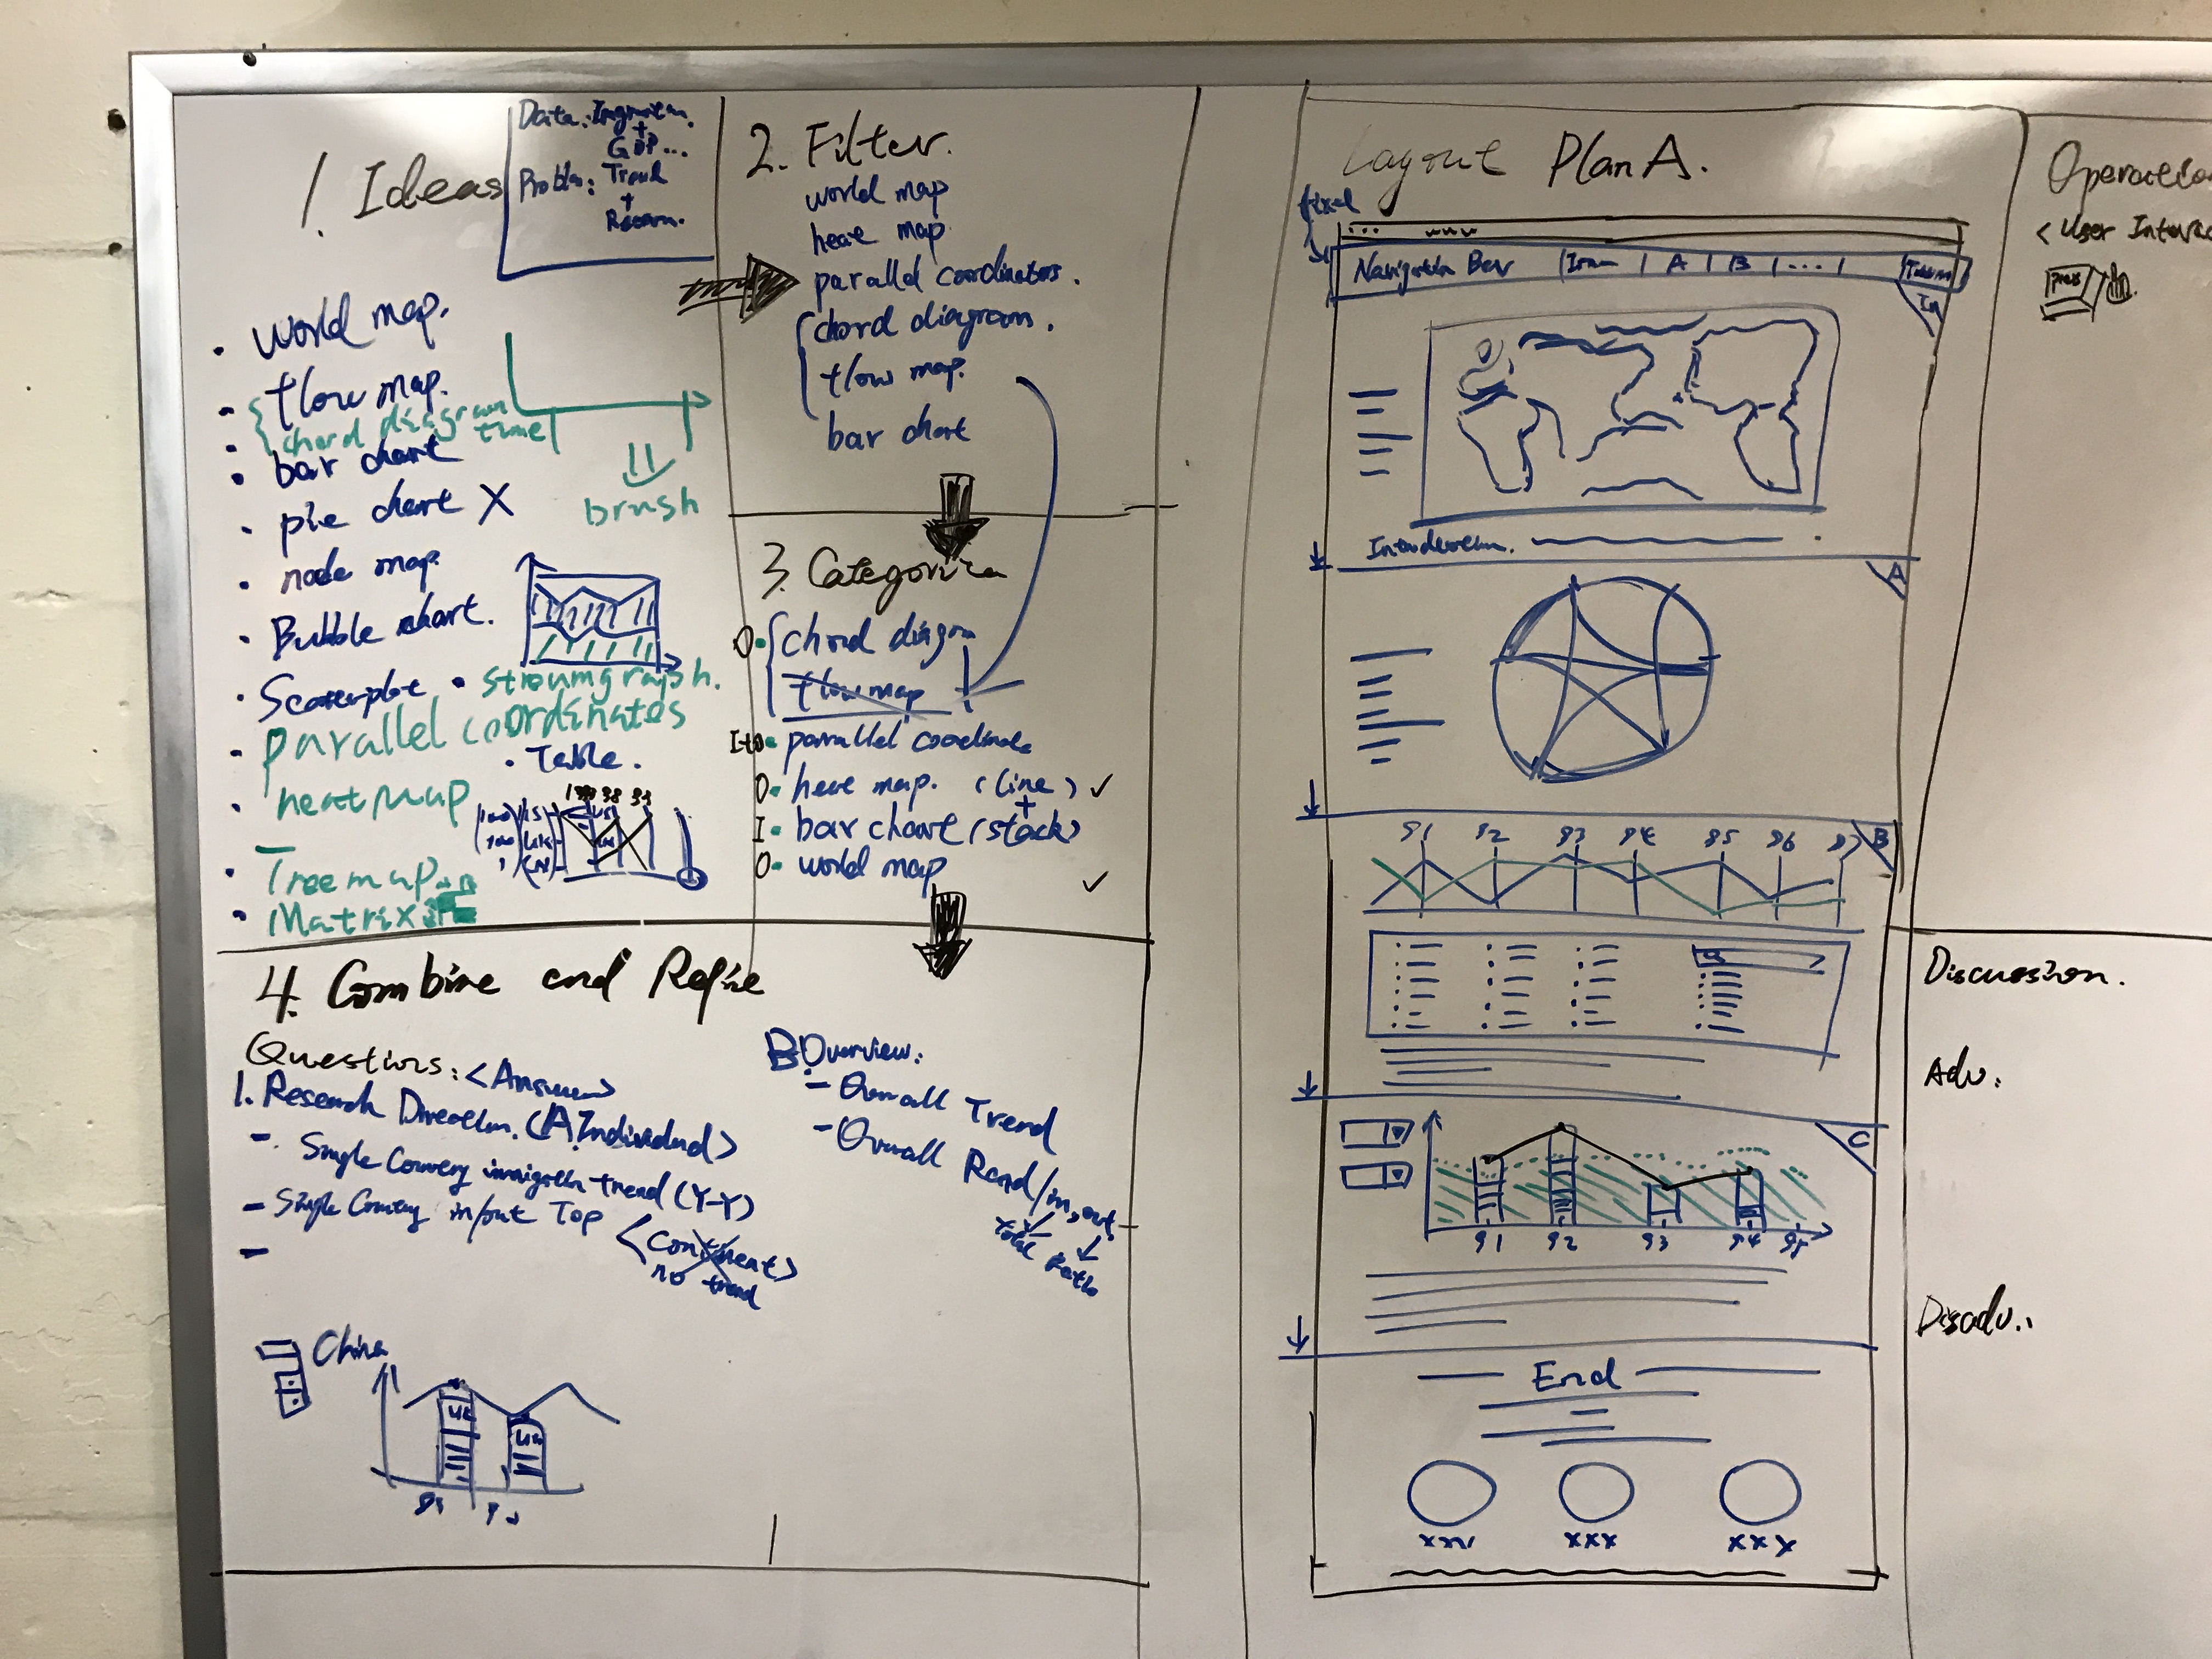 1. Ideas
Data: Imgration.
+
GDP...
Problem: Trend
+
Reason.
• world map.
• flow map.
• chord diagram
time
• bar chart
• pie chart X
brush
• node map
• Bubble chart.
• Scatterplot
• streamgraph.
• parallel coordinates
• Table.
• heatmap
• Treemap
• Matrix
2. Filter.
world map
heat map
parallel coordinators.
chord diagram.
flow map.
bar chart
3. Categorize
O • chord diagram
flow map
I+O • parallel coordinate
O • heat map. (line) ✓
+
I • bar chart (stack)
O • world map
✓
4. Combine and Refine
Questions: <Answer>
1. Research Direction. (A Individual>
- Single Country immigration trend (Y-Y)
- Single Country in/out Top
<Continent>
no trend
-
B Overview:
- Overall Trend
- Overall Rend/in,out
total
Ratio
China
UK
US
91
92
Layout Plan A.
fixed
... www
Navigation Bar | Intro | A | B | ... |
In
Introduction.
A
91 92 93 94 95 96 97
B
C
91 92 93 94 95
End
xxx
xxx
xxx
Operation
< User Interac
press
Discussion.
Adv.:
Disadv.: